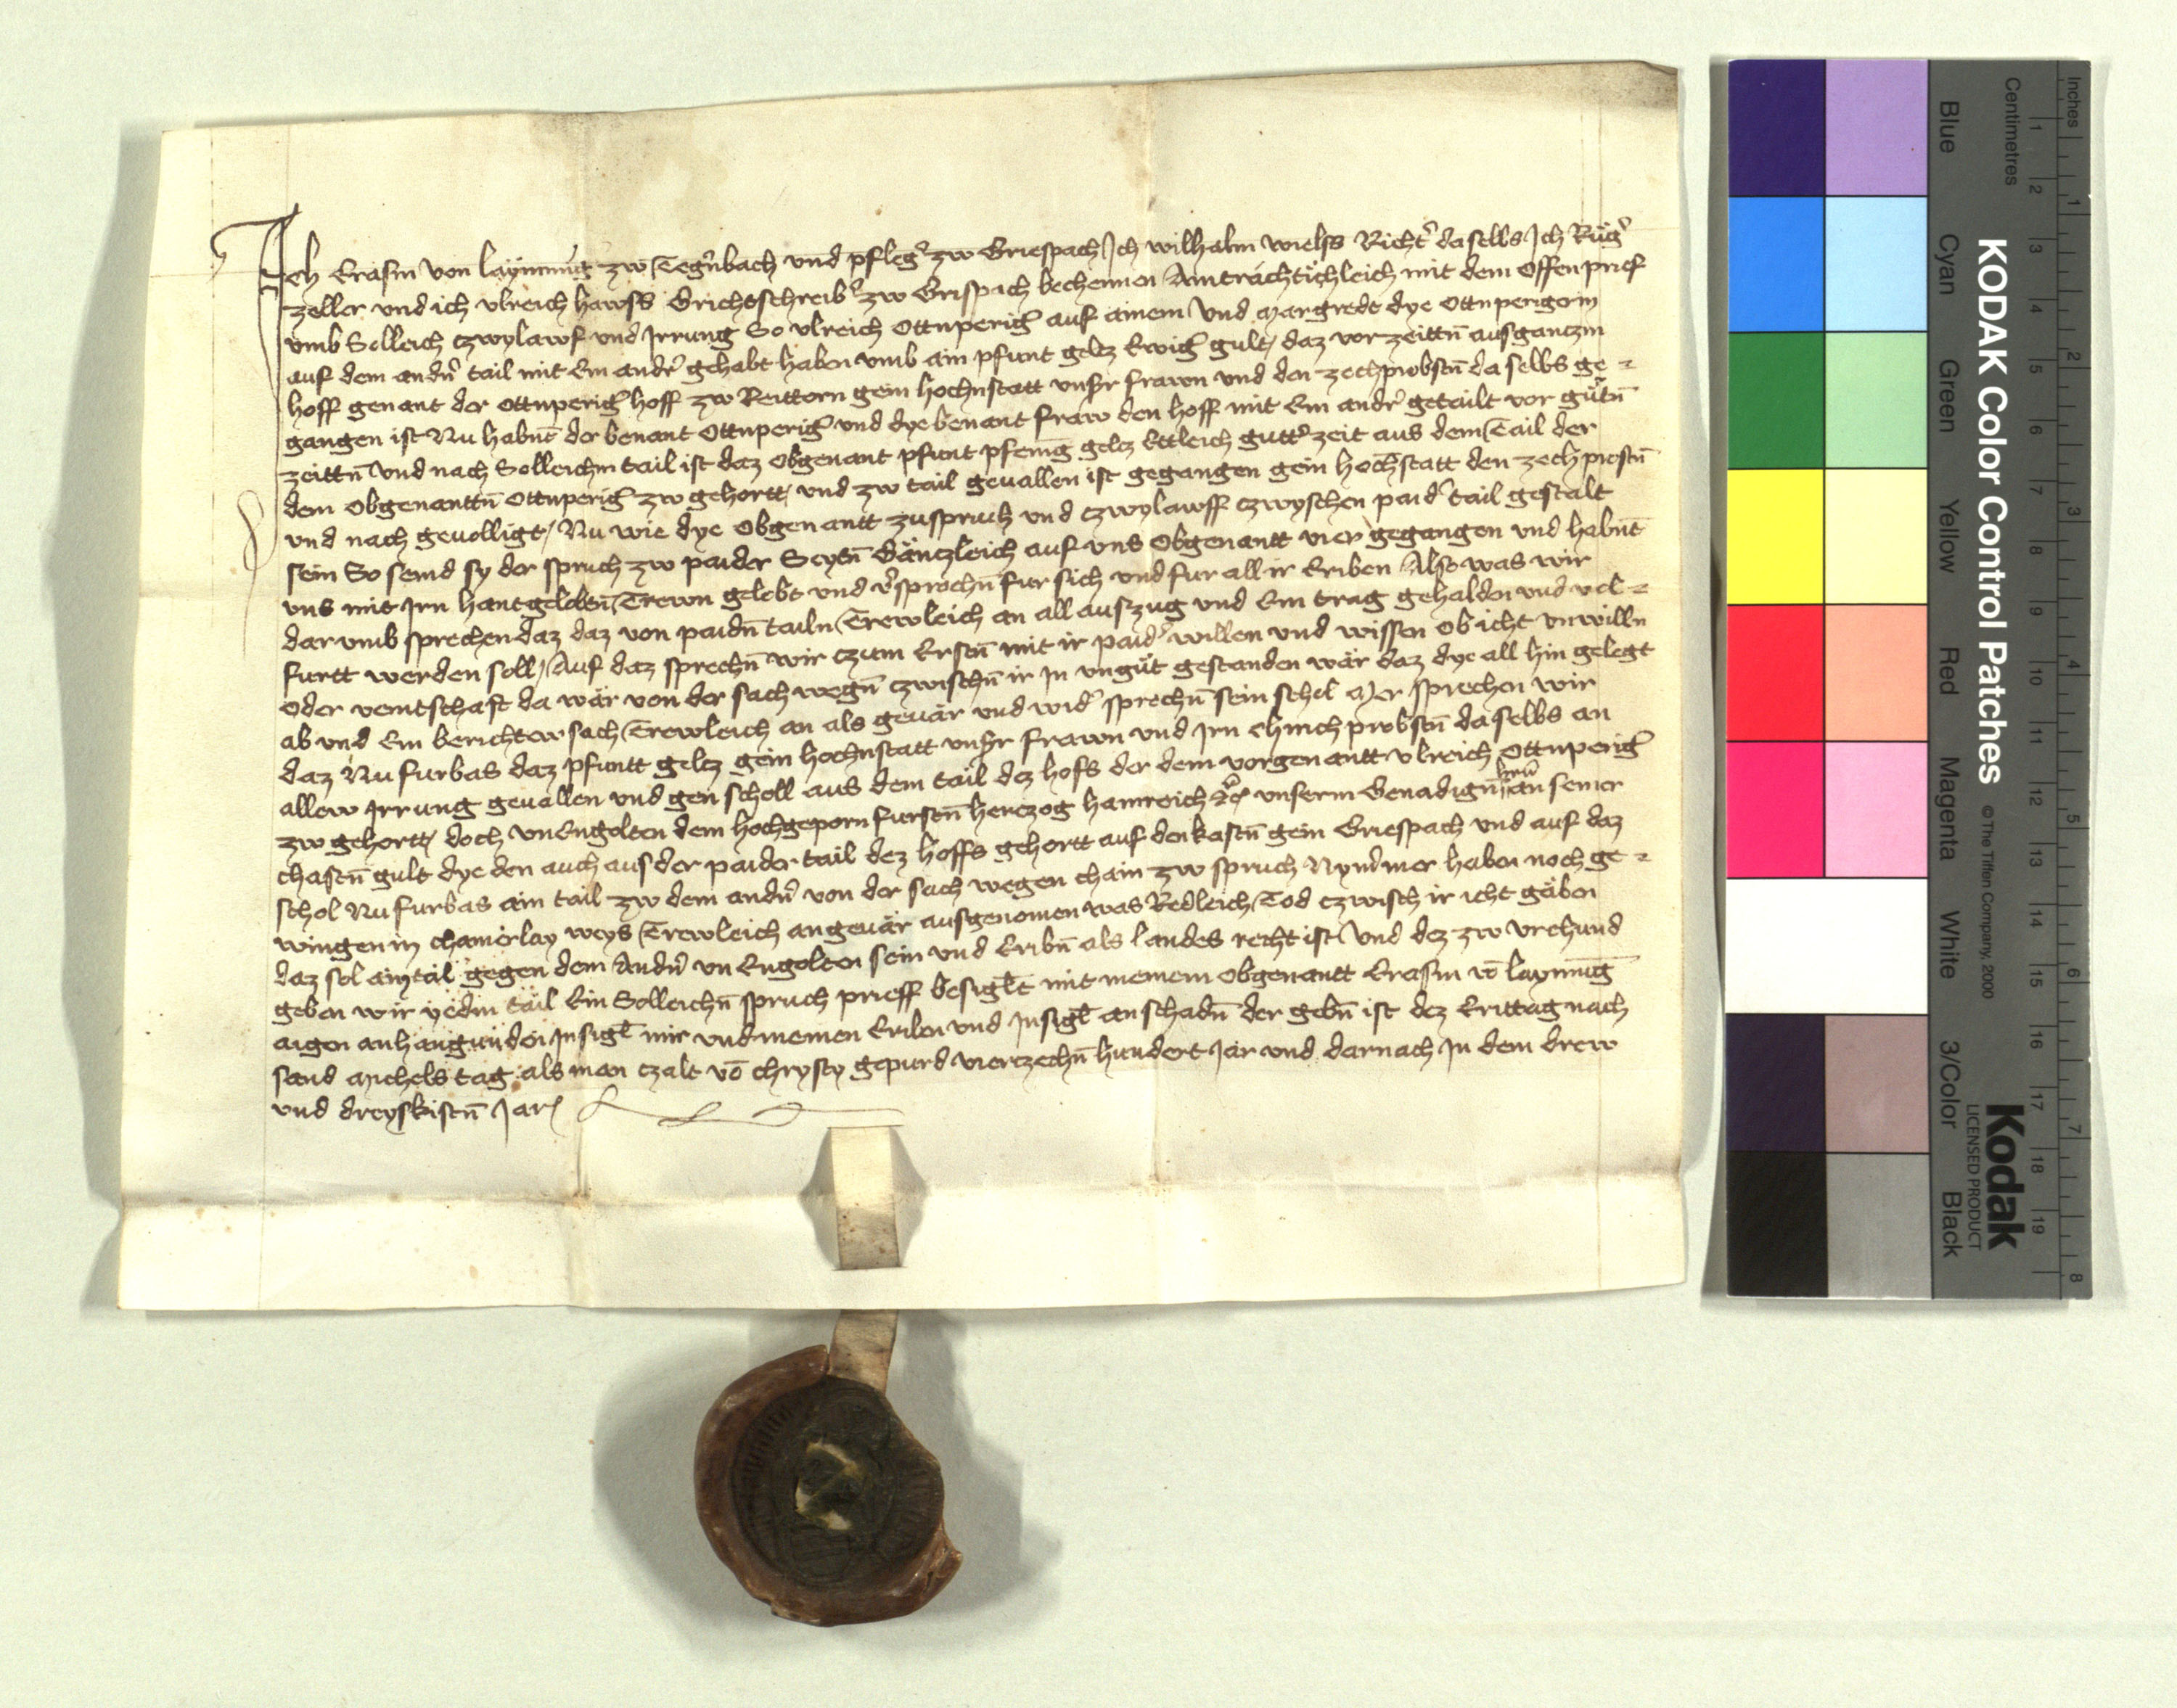 Ich Erasm von laymmg zw Tegnbach und pfleg zw Griespach Ich wilhalm wielss Richt daselbs Ich Rug
zeller und ich vlreich hawss Grichtschreib zw Grispach bechennen Ainträchtichleich mit dem Offen prief
vmb Solleich czwylawf und Irrung So vlreich Ottnperig auf ainem Und Margredt dye Ottnperigerin
auf dem andn tail mit Ein andr gehabt haben vmb ain pfunt geltz Ewig gult daz vor zeittn aus gantzm
hoff genant der Ottnperig hoff zw Reittorn gein hochnstatt unßer frawn und den zechprobstn da selbs ge=
gangen ist Nu habnt der benant Ottnperig und dye benant fraw den hoff mit Ein andr getailt vor gutn
zeittn Und nach Solleichm tail ist daz Obgenant pfunt pfening geltz Ettleich gutt zeit aus dem Tail der
dem Obgenanttn Ottnperig zw gehortt und zw tail geuallen ist gegangen gein hochstatt den zech prostn
vnd nach geuolligt Nu wie dye Obgenantt zuspruch und czwylawff czwyschen paid tail gestalt
sein So send sy der spruch zw paider Seytn Gäntzleich auf vns Obgenantt vier gegangen und habnt
vns mit Irn hantgelobtn Trewn gelobt und vsprochn fur sich und fur all ir Eriben Also was wir
dar vmb sprechen daz daz von paidn tailn Trewleich an all auszug und Ein trag gehalden und vol=
furtt werden soll Auf daz sprechn wir czum Erstn mit ir paid willen und wissen Ob icht vnwilln
oder veintschaft da wär von der sach wegn czwischn ir In ungut gestanden wär daz dye all hin gelegt
ab und Ein berichtew sach Trewleich an als geuär und wid sprechn sein schol Mer sprechen wir
daz Nu furbas daz pfuntt geltz gein hochnstatt unßer frawn und Irn chirich probstn daselbs an
allew Irrung geuallen und gen scholl aus dem tail dez hofs der dem vorgenantt vlreich Ottnperig
zw gehortt doch vnEngolten dem hochgeporn furstn hertzog hainreich etc unserm Genadign hrn an seiner
chastn gult dye den auch aus der paider tail dez hoffs gehortt auf den kastn gein Griespach und auf daz
schol Nu furbas ain tail zw dem andn von der sach wegen chain zw spruch Nymmer haben noch ge=
wingen in chainerlay weys Trewleich an geuär ausgenomen was Redleich Tod czwisch ir icht gäben
daz sol ain tail gegen dem Andn vn Engolten sein und Eribn als landes recht ist Und dez zw vrchund
geben wir yedm tail Ein Solleichn spruch prieff besiglt mit meinem Obgenantt Erasm vo laymmg
aigen anhangunden Insigl mir und meinen Eriben und Insigl an schadn der gebn ist dez Erittag nach
sand Michels tag als man czalt vo chrysty gepurd vierzechn hundert Jar und darnach In dem drew
und dreyskistn Jar
KODAK Color Control Patches © The Tiffen Company, 2000
Kodak
LICENSED PRODUCT
Inches 1 2 3 4 5 6 7 8
Centimetres 1 2 3 4 5 6 7 8 9 10 11 12 13 14 15 16 17 18 19
Blue Cyan Green Yellow Red Magenta White 3/Color Black